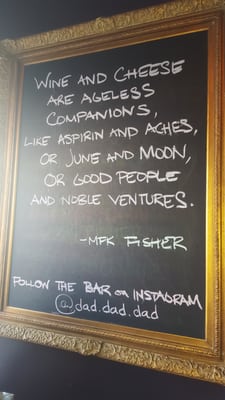 WINE AND CHEESE
ARE AGELESS
COMPANIONS,
LIKE ASPIRIN AND ACHES,
OR JUNE AND MOON,
OR GOOD PEOPLE
AND NOBLE VENTURES.
-MFK FISHER
FOLLOW THE BAR on INSTAGRAM
@dad.dad.dad